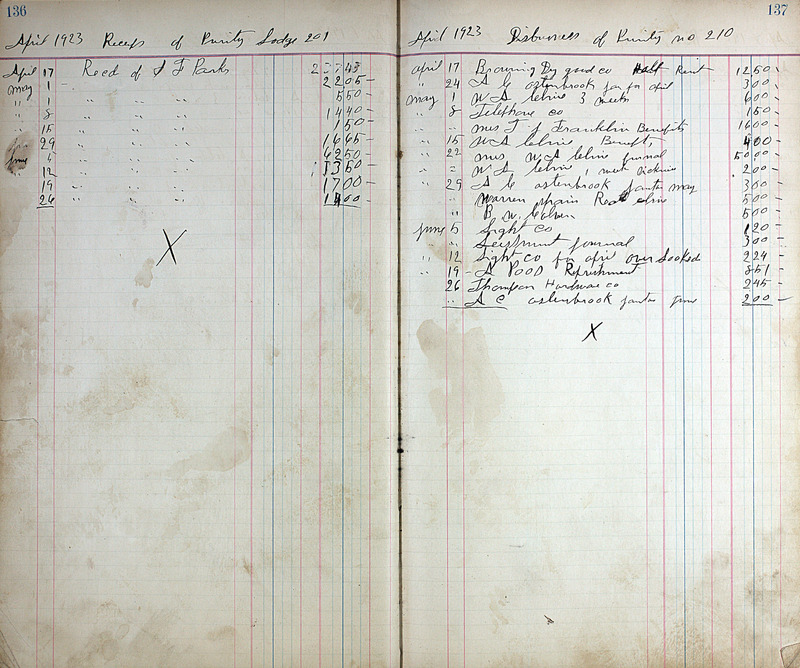 136
April 1923 Receps of Purity Lodge 201
April 17 Recd of J J Parks 2 " " 43
May 1 " " " 2205-
" 1 " " " 550-
" 8 " " " 1440-
" 15 " " " 150-
" 29 " " " 1665-
June 5 " " " 6250-
" 12 " " " 1350-
" 19 " " " 1700-
" 26 " " " 1400-
X
137
April 1923 Disbursess of Purity no 210
April 17 Browning Dry good co Half Rent 1250-
" 24 A C astenbrook for april 300-
May 1 W A 3 weeks 600-
" 8 Telephone co 150-
" " mrs J J Franklin Benefits 1600-
" 15 W A Benefits 400-
" 22 mrs W A funeral 5000-
" = W A 1 week sickness 200-
" 29 A C astenbrook Janitor may 300
" Warren 500-
" B W 500-
June 5 Light Co 120
" " Journal 300-
" 12 Light co for april over Looked 224-
" 19- A POOD Refrishment 851-
26 Thompson Hardware co 245-
" A C astenbrook janitor June 200-
X